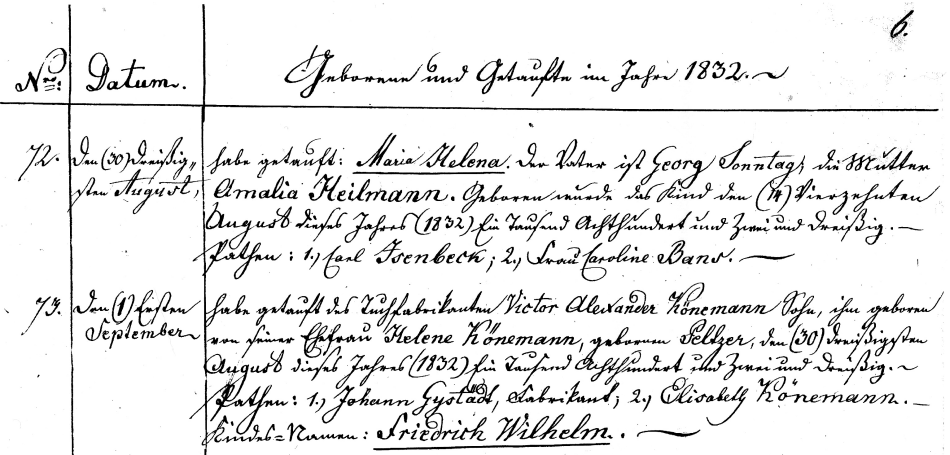 6.
Nro: Datum. Geborene und Getaufte im Jahre 1832.
72. Den (30) dreißig- habe getauft: Maria Helena. Der Vater ist Georg Sonntag, die Mutter
sten August, Amalia Heilmann. Geboren wurde das Kind den (14) Vierzehnten
August dieses Jahres (1832) Ein Tausend Achthundert und Zwei und dreißig. —
Pathen: 1.) Carl Isenbeck; 2.) Frau Caroline Bans. —
73. Den (1) Ersten habe getauft des Tuchfabrikanten Victor Alexander Könemann Sohn, ihm geboren
September von seiner Ehefrau Helene Könemann, gebornen Peltzer, den (30) dreißigsten
August dieses Jahres (1832) Ein Tausend Achthundert und Zwei und dreißig.
Pathen: 1.) Johann Gystädt, Fabrikant; 2.) Elisabeth Könemann. —
Kindes=Namen: Friedrich Wilhelm. —